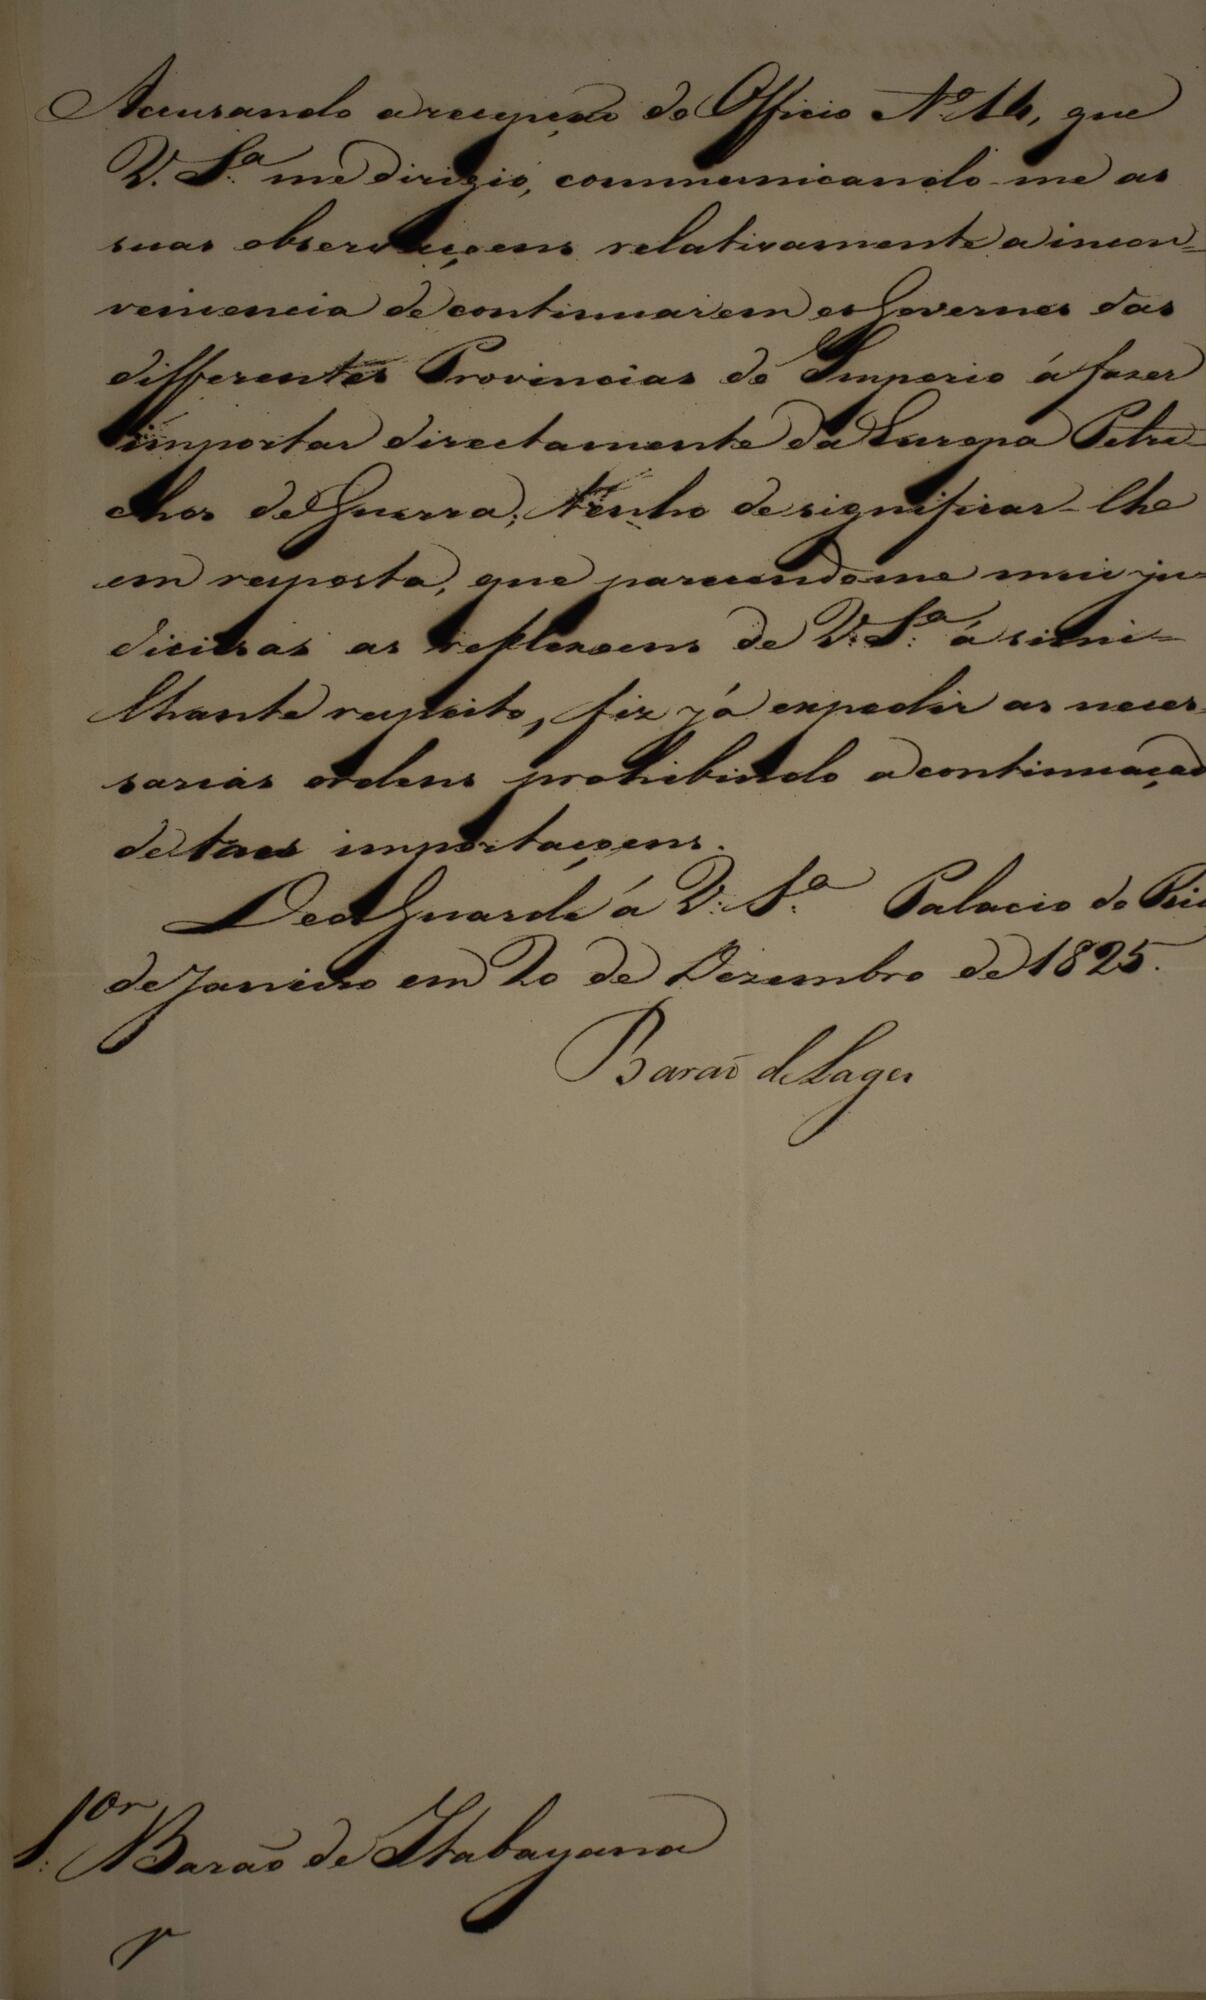 Accusando a recepção do Officio Nº 14, que
V. Sª me dirigio, communicando-me as
suas observaçoens relativamente a incon=
veniencia de continuarem os Governos das
differentes Provincias do Imperio á fazer
importar directamente da Europa Petre=
chos de Guerra; tenho de significar-lhe
em resposta, que parecendo me mui ju=
diciosas as reflexoens de V. Sª á simi=
lhante respeito, fiz já expedir as neces=
sarias ordens prohibindo a continuação
de taes importaçoens.
Deos Guarde á V. Sª Palacio do Rio
de Janeiro em 20 de Dezembro de 1825.
Barão de Lages
S.or Barão de Itabayana